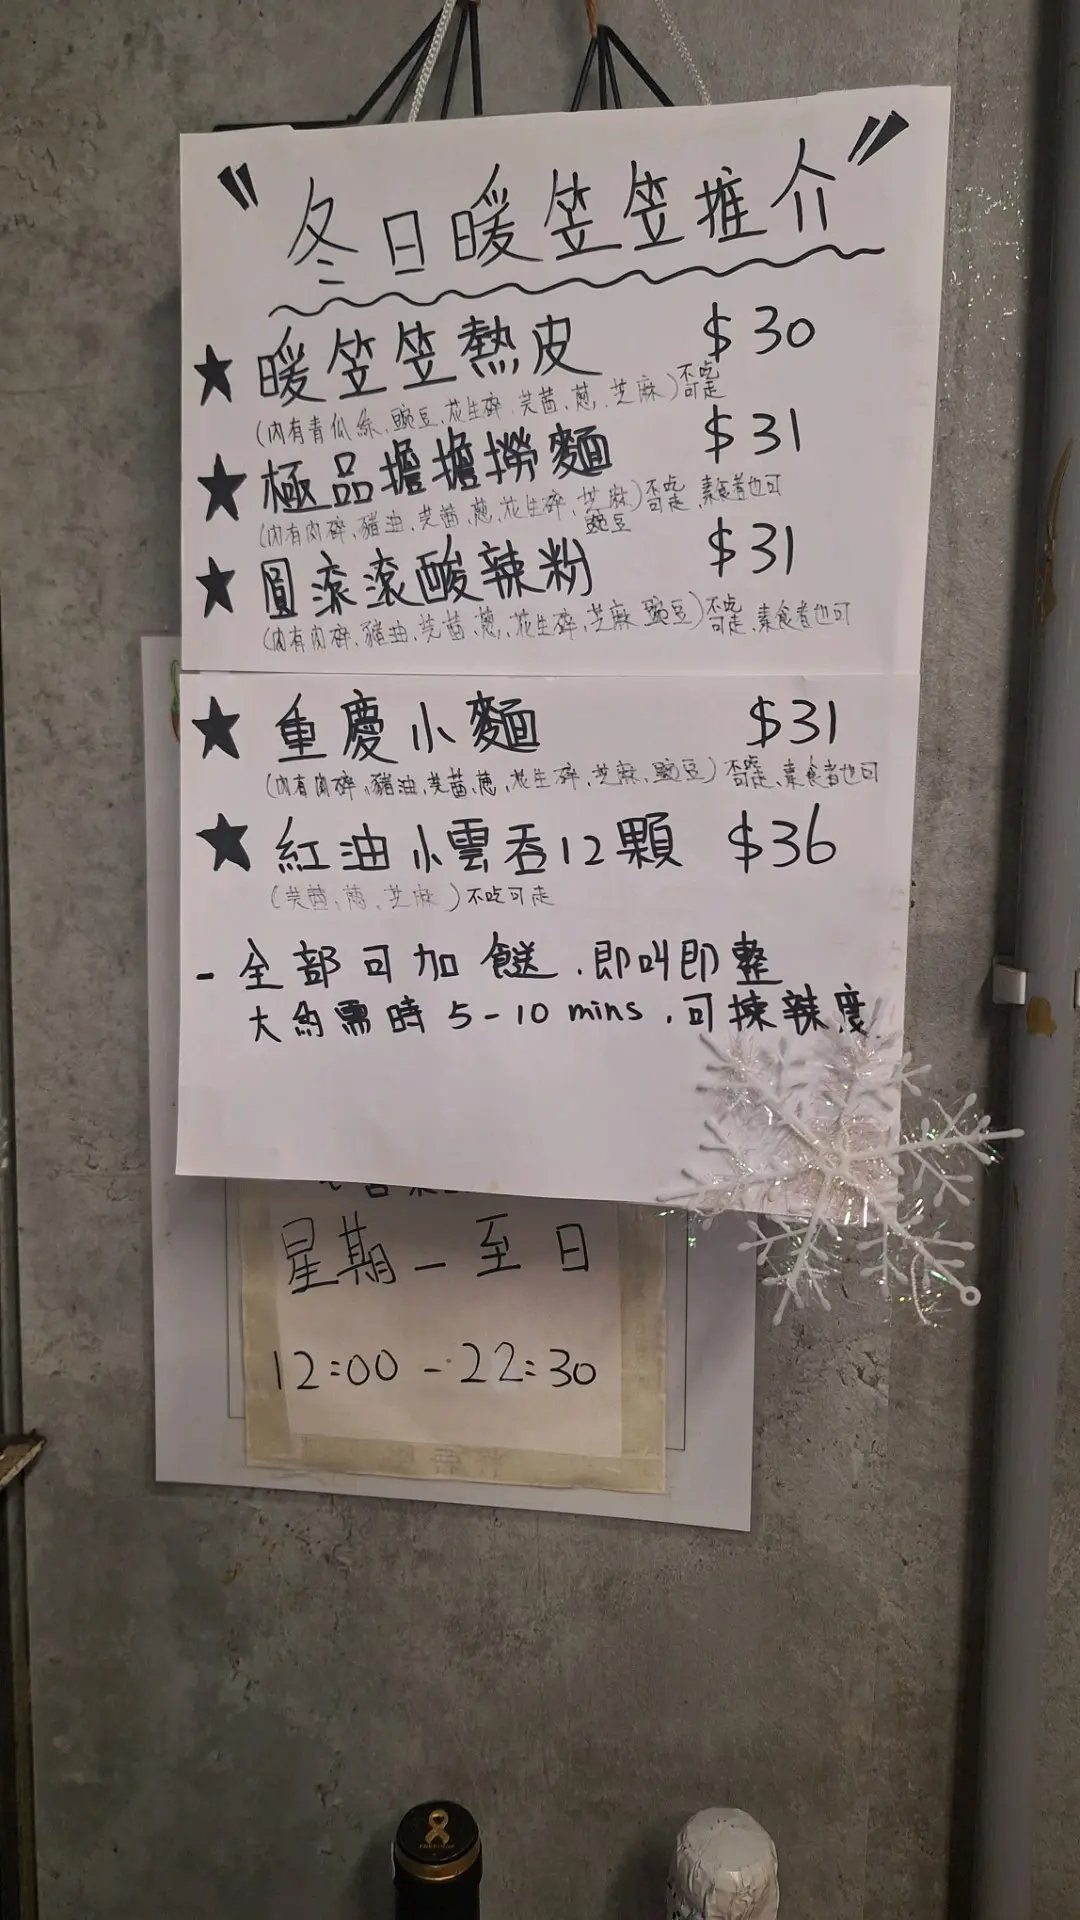 "冬日暖笠笠推介"
★ 暖笠笠熱皮 $30
(內有青瓜絲、豌豆、花生碎、芫茜、蔥、芝麻)不吃可走
★ 極品擔擔撈麵 $31
(內有肉碎、豬油、芫茜、蔥、花生碎、芝麻、豌豆)不吃可走、素食者也可
★ 圓滾滾酸辣粉 $31
(內有肉碎、豬油、芫茜、蔥、花生碎、芝麻、豌豆)不吃可走、素食者也可
★ 重慶小麵 $31
(內有肉碎、豬油、芫茜、蔥、花生碎、芝麻、豌豆)不吃可走、素食者也可
★ 紅油小雲吞12顆 $36
(芫茜、蔥、芝麻)不吃可走
- 全部可加餸.即叫即整
大約需時5-10 mins.可揀辣度
星期一至日
12:00 - 22:30